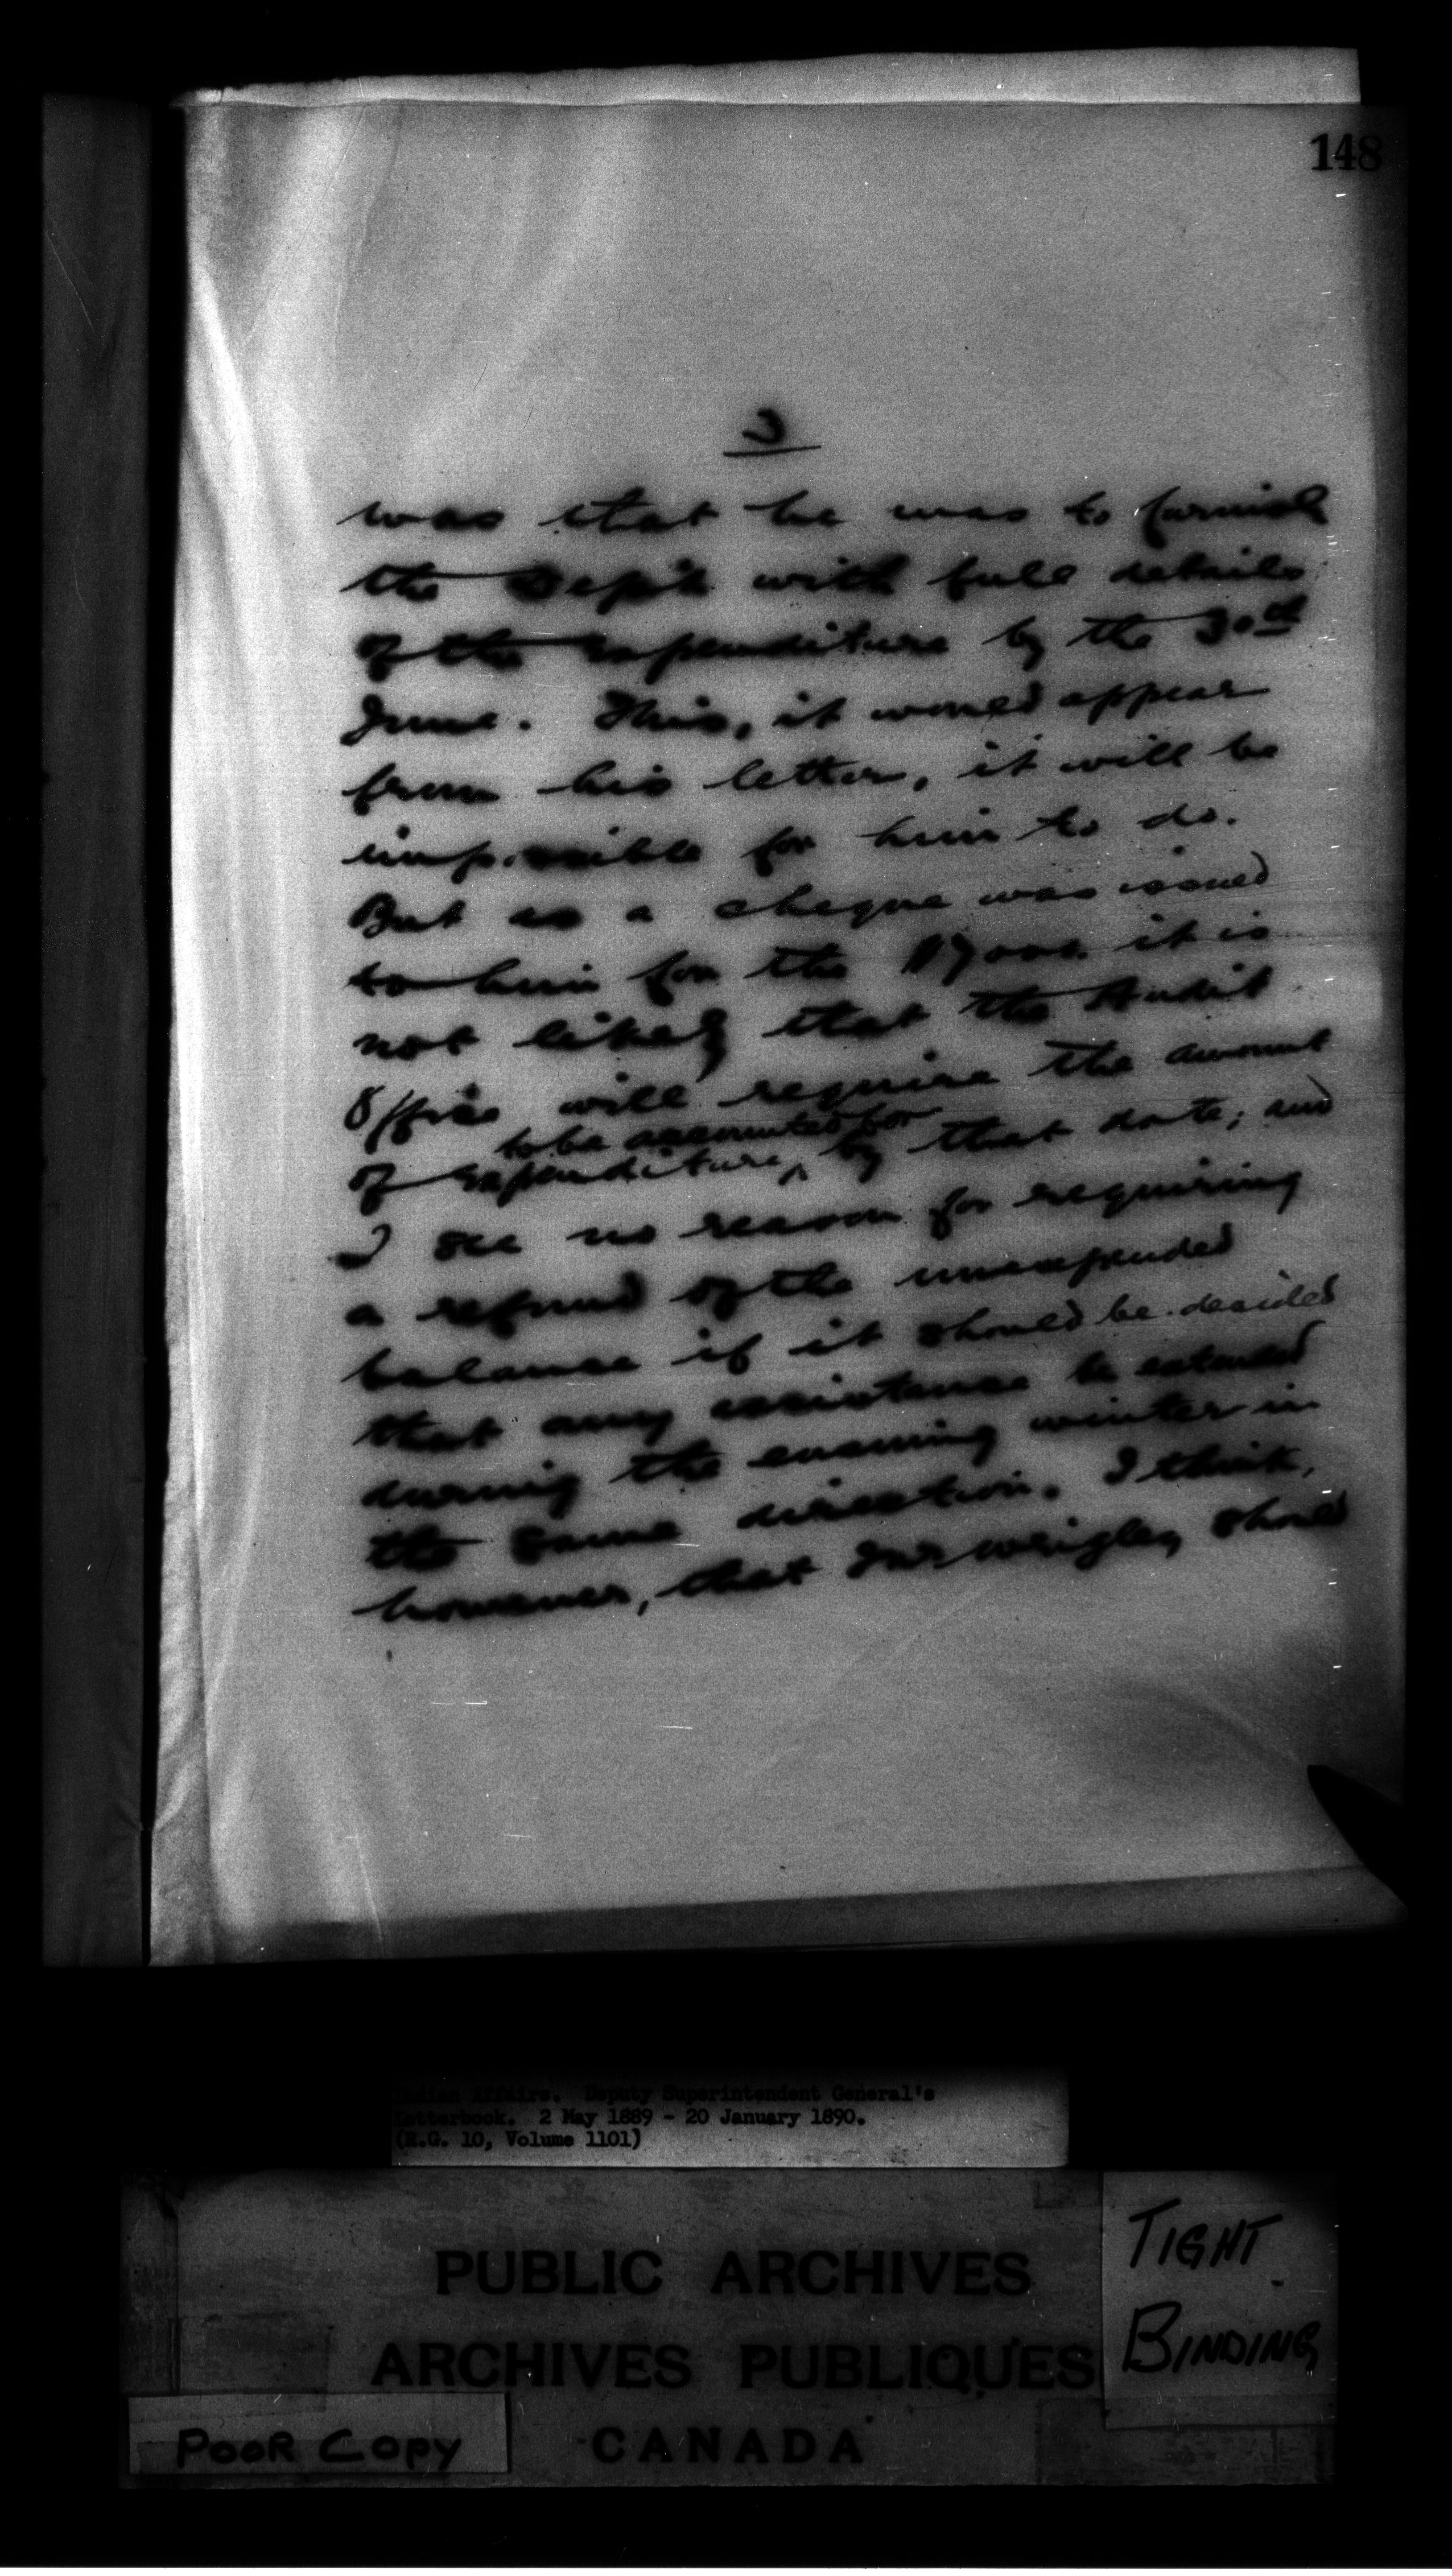 148
3
was that he was to furnish
the Dep't with full details
of the expenditure by the 30th
June. This, it would appear
from his letter, it will be
impossible for him to do.
But as a cheque was issued
to him for the it is
not likely that the Audit
Office will require the amount
to be accounted for
of expenditure, by that date; and
I see no reason for requiring
a refund of the unexpended
balance if it should be decided
that any assistance be extended
during the ensuing winter in
the same direction. I think,
however, that Mr Wrigley should
Indian Affairs. Deputy Superintendent General's
Letterbook. 2 May 1889 - 20 January 1890.
(R.G. 10, Volume 1101)
TIGHT
BINDING
PUBLIC ARCHIVES
ARCHIVES PUBLIQUES
CANADA
POOR COPY